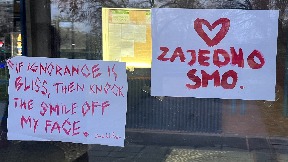 IF IGNORANCE IS
BLISS, THEN KNOCK
THE SMILE OFF
MY FACE.
ZAJEDNO
SMO.